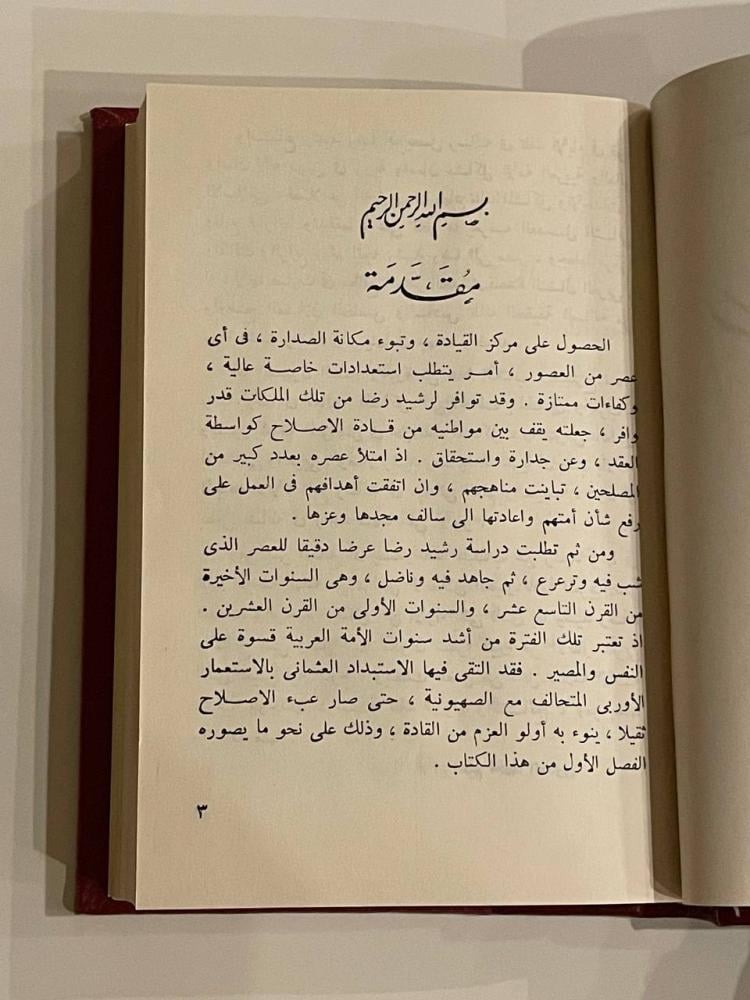 بسم الله الرحمن الرحيم
مُقَدَّمَة
الحصول على مركز القيادة ، وتبوء مكانة الصدارة ، فى أى
عصر من العصور ، أمر يتطلب استعدادات خاصة عالية ،
وكفاءات ممتازة . وقد توافر لرشيد رضا من تلك الملكات قدر
وافر ، جعلته يقف بين مواطنيه من قادة الاصلاح كواسطة
العقد ، وعن جدارة واستحقاق . اذ امتلأ عصره بعدد كبير من
المصلحين ، تباينت مناهجهم ، وان اتفقت أهدافهم فى العمل على
رفع شأن أمتهم واعادتها الى سالف مجدها وعزها .
ومن ثم تطلبت دراسة رشيد رضا عرضا دقيقا للعصر الذى
شب فيه وترعرع ، ثم جاهد فيه وناضل ، وهى السنوات الأخيرة
من القرن التاسع عشر ، والسنوات الأولى من القرن العشرين .
اذ تعتبر تلك الفترة من أشد سنوات الأمة العربية قسوة على
النفس والمصير . فقد التقى فيها الاستبداد العثمانى بالاستعمار
الأوربى المتحالف مع الصهيونية ، حتى صار عبء الاصلاح
ثقيلا ، ينوء به أولو العزم من القادة ، وذلك على نحو ما يصوره
الفصل الأول من هذا الكتاب .
٣